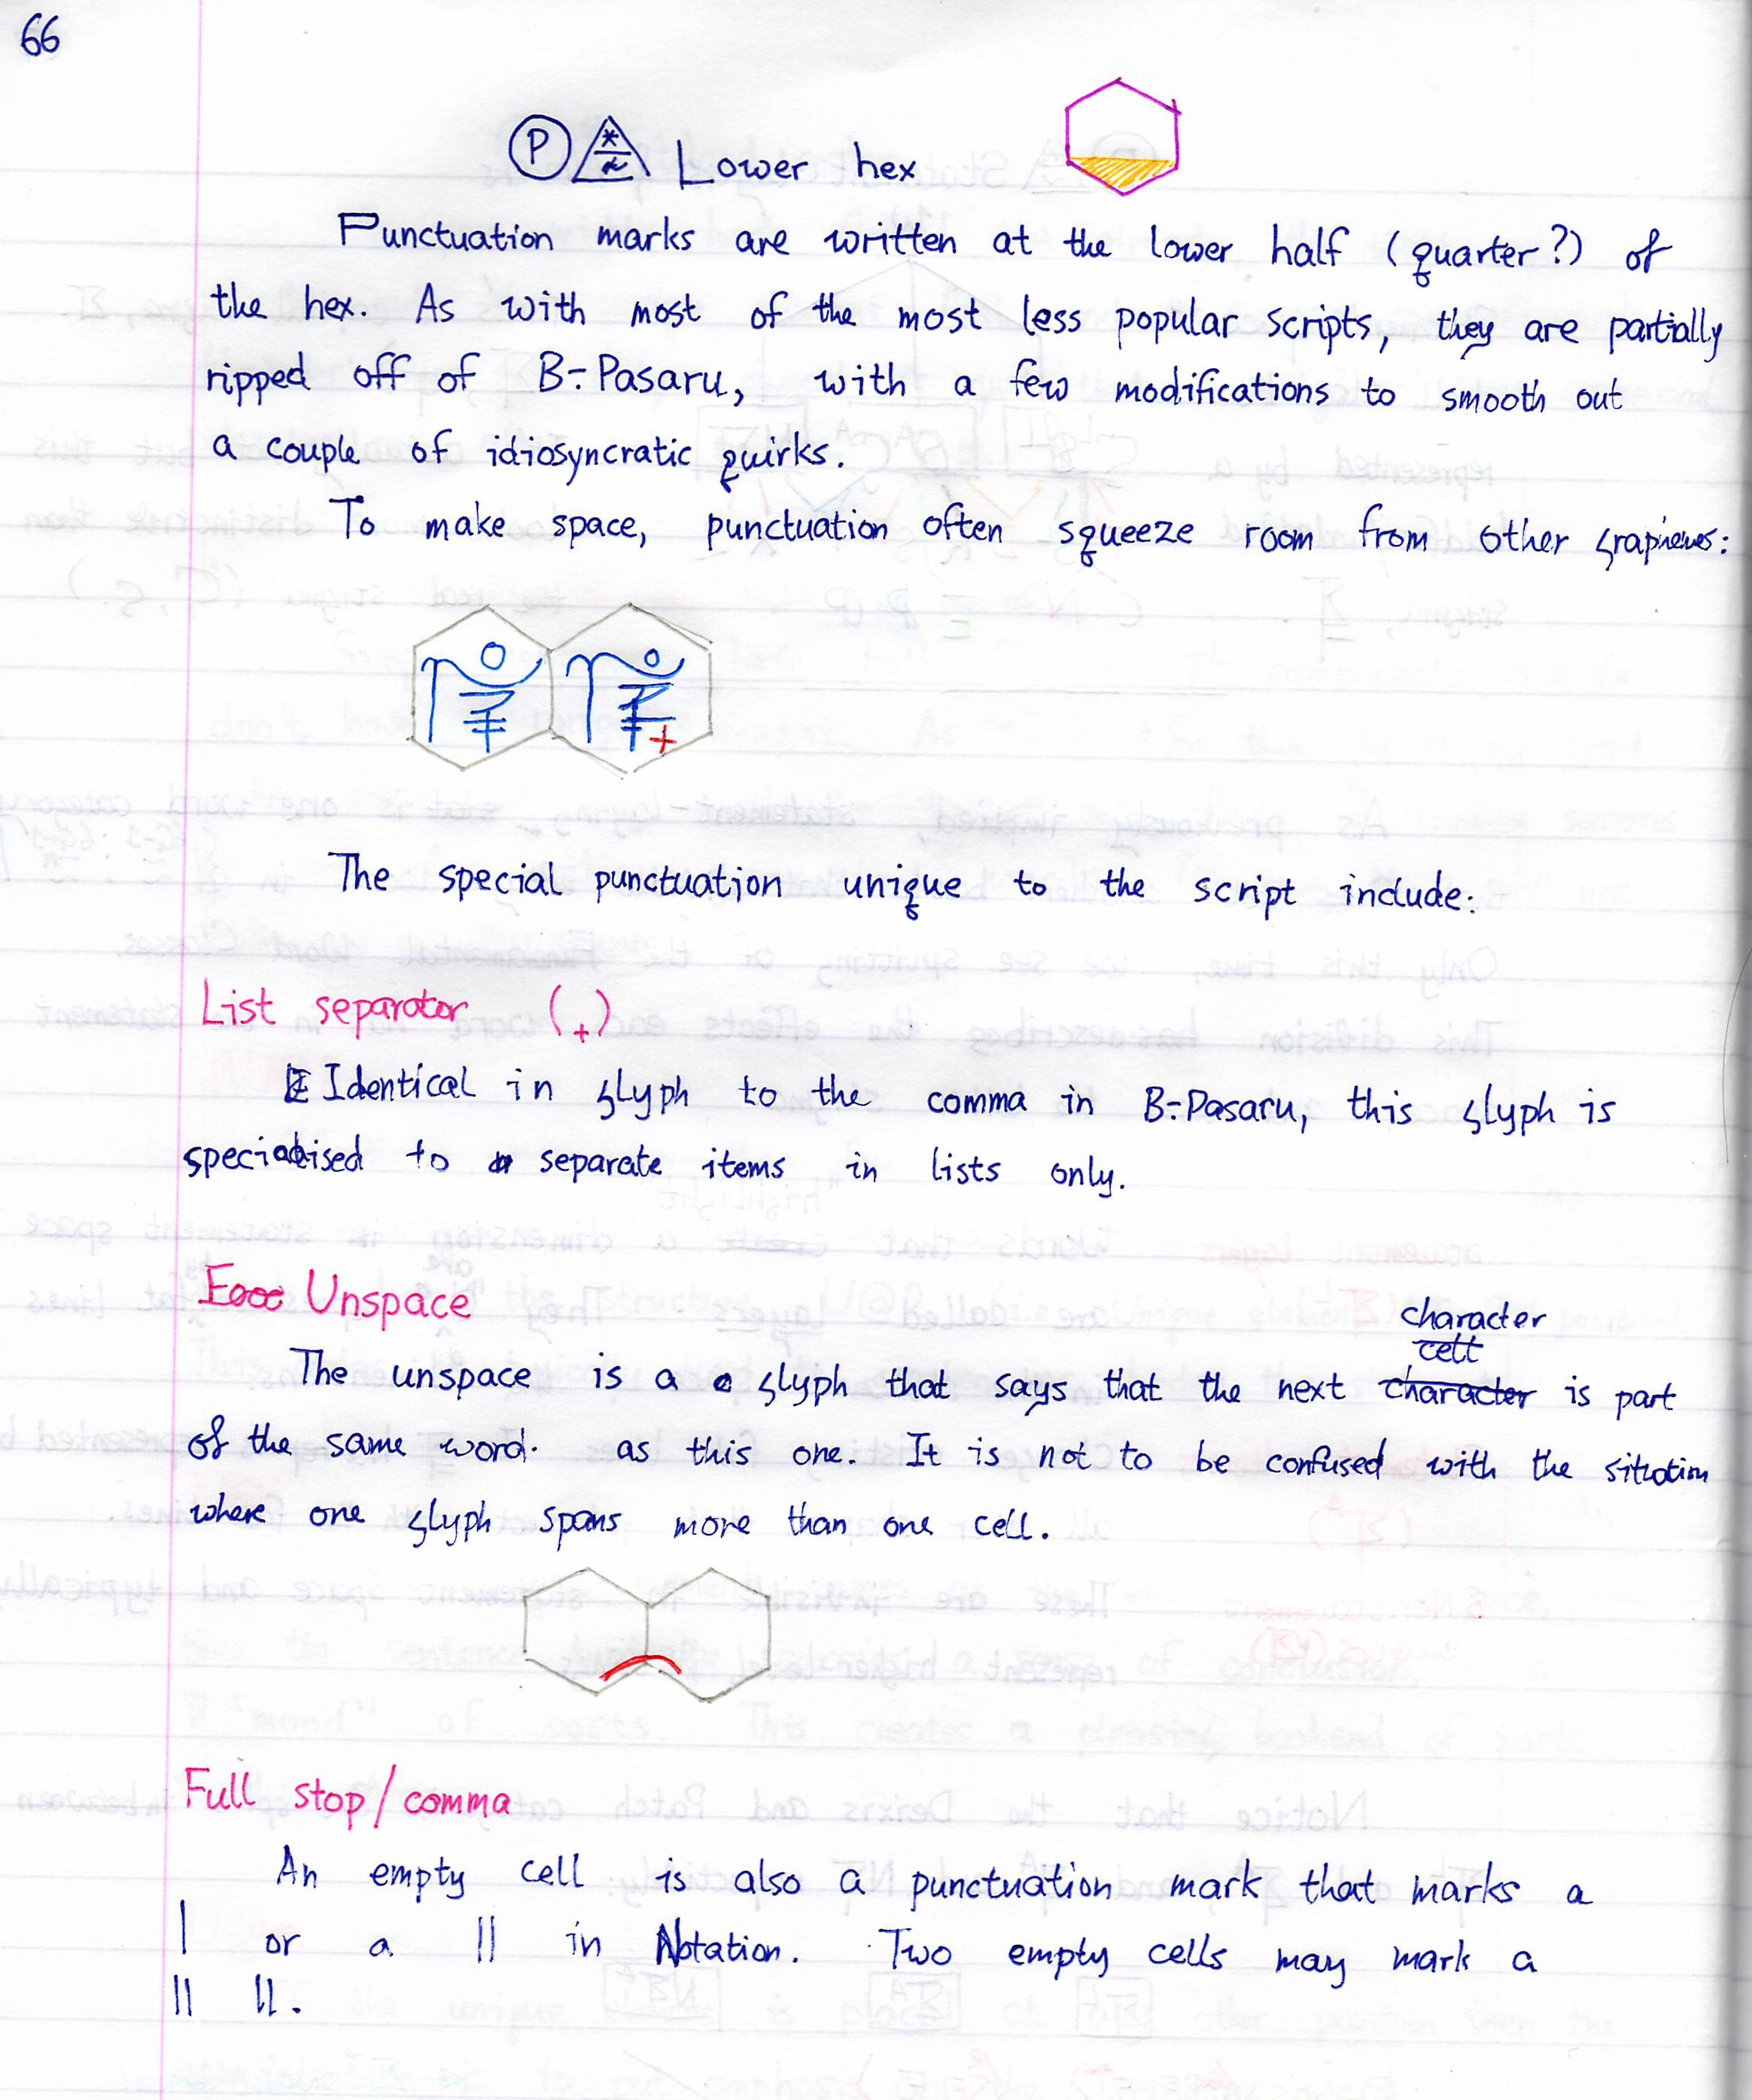 66
P Lower hex
Punctuation marks are written at the lower half (quarter?) of
the hex. As with most of the most less popular scripts, they are partially
ripped off of B-Pasaru, with a few modifications to smooth out
a couple of idiosyncratic quirks.
To make space, punctuation often squeeze room from other graphemes:
The special punctuation unique to the script include:
List separator (+)
Identical in glyph to the comma in B-Pasaru, this glyph is
specialised to separate items in lists only.
Unspace
character
cell
The unspace is a glyph that says that the next character is part
of the same word. as this one. It is not to be confused with the situation
where one glyph spans more than one cell.
Full stop/comma
An empty cell is also a punctuation mark that marks a
| or a || in Notation. Two empty cells may mark a
|| ||.